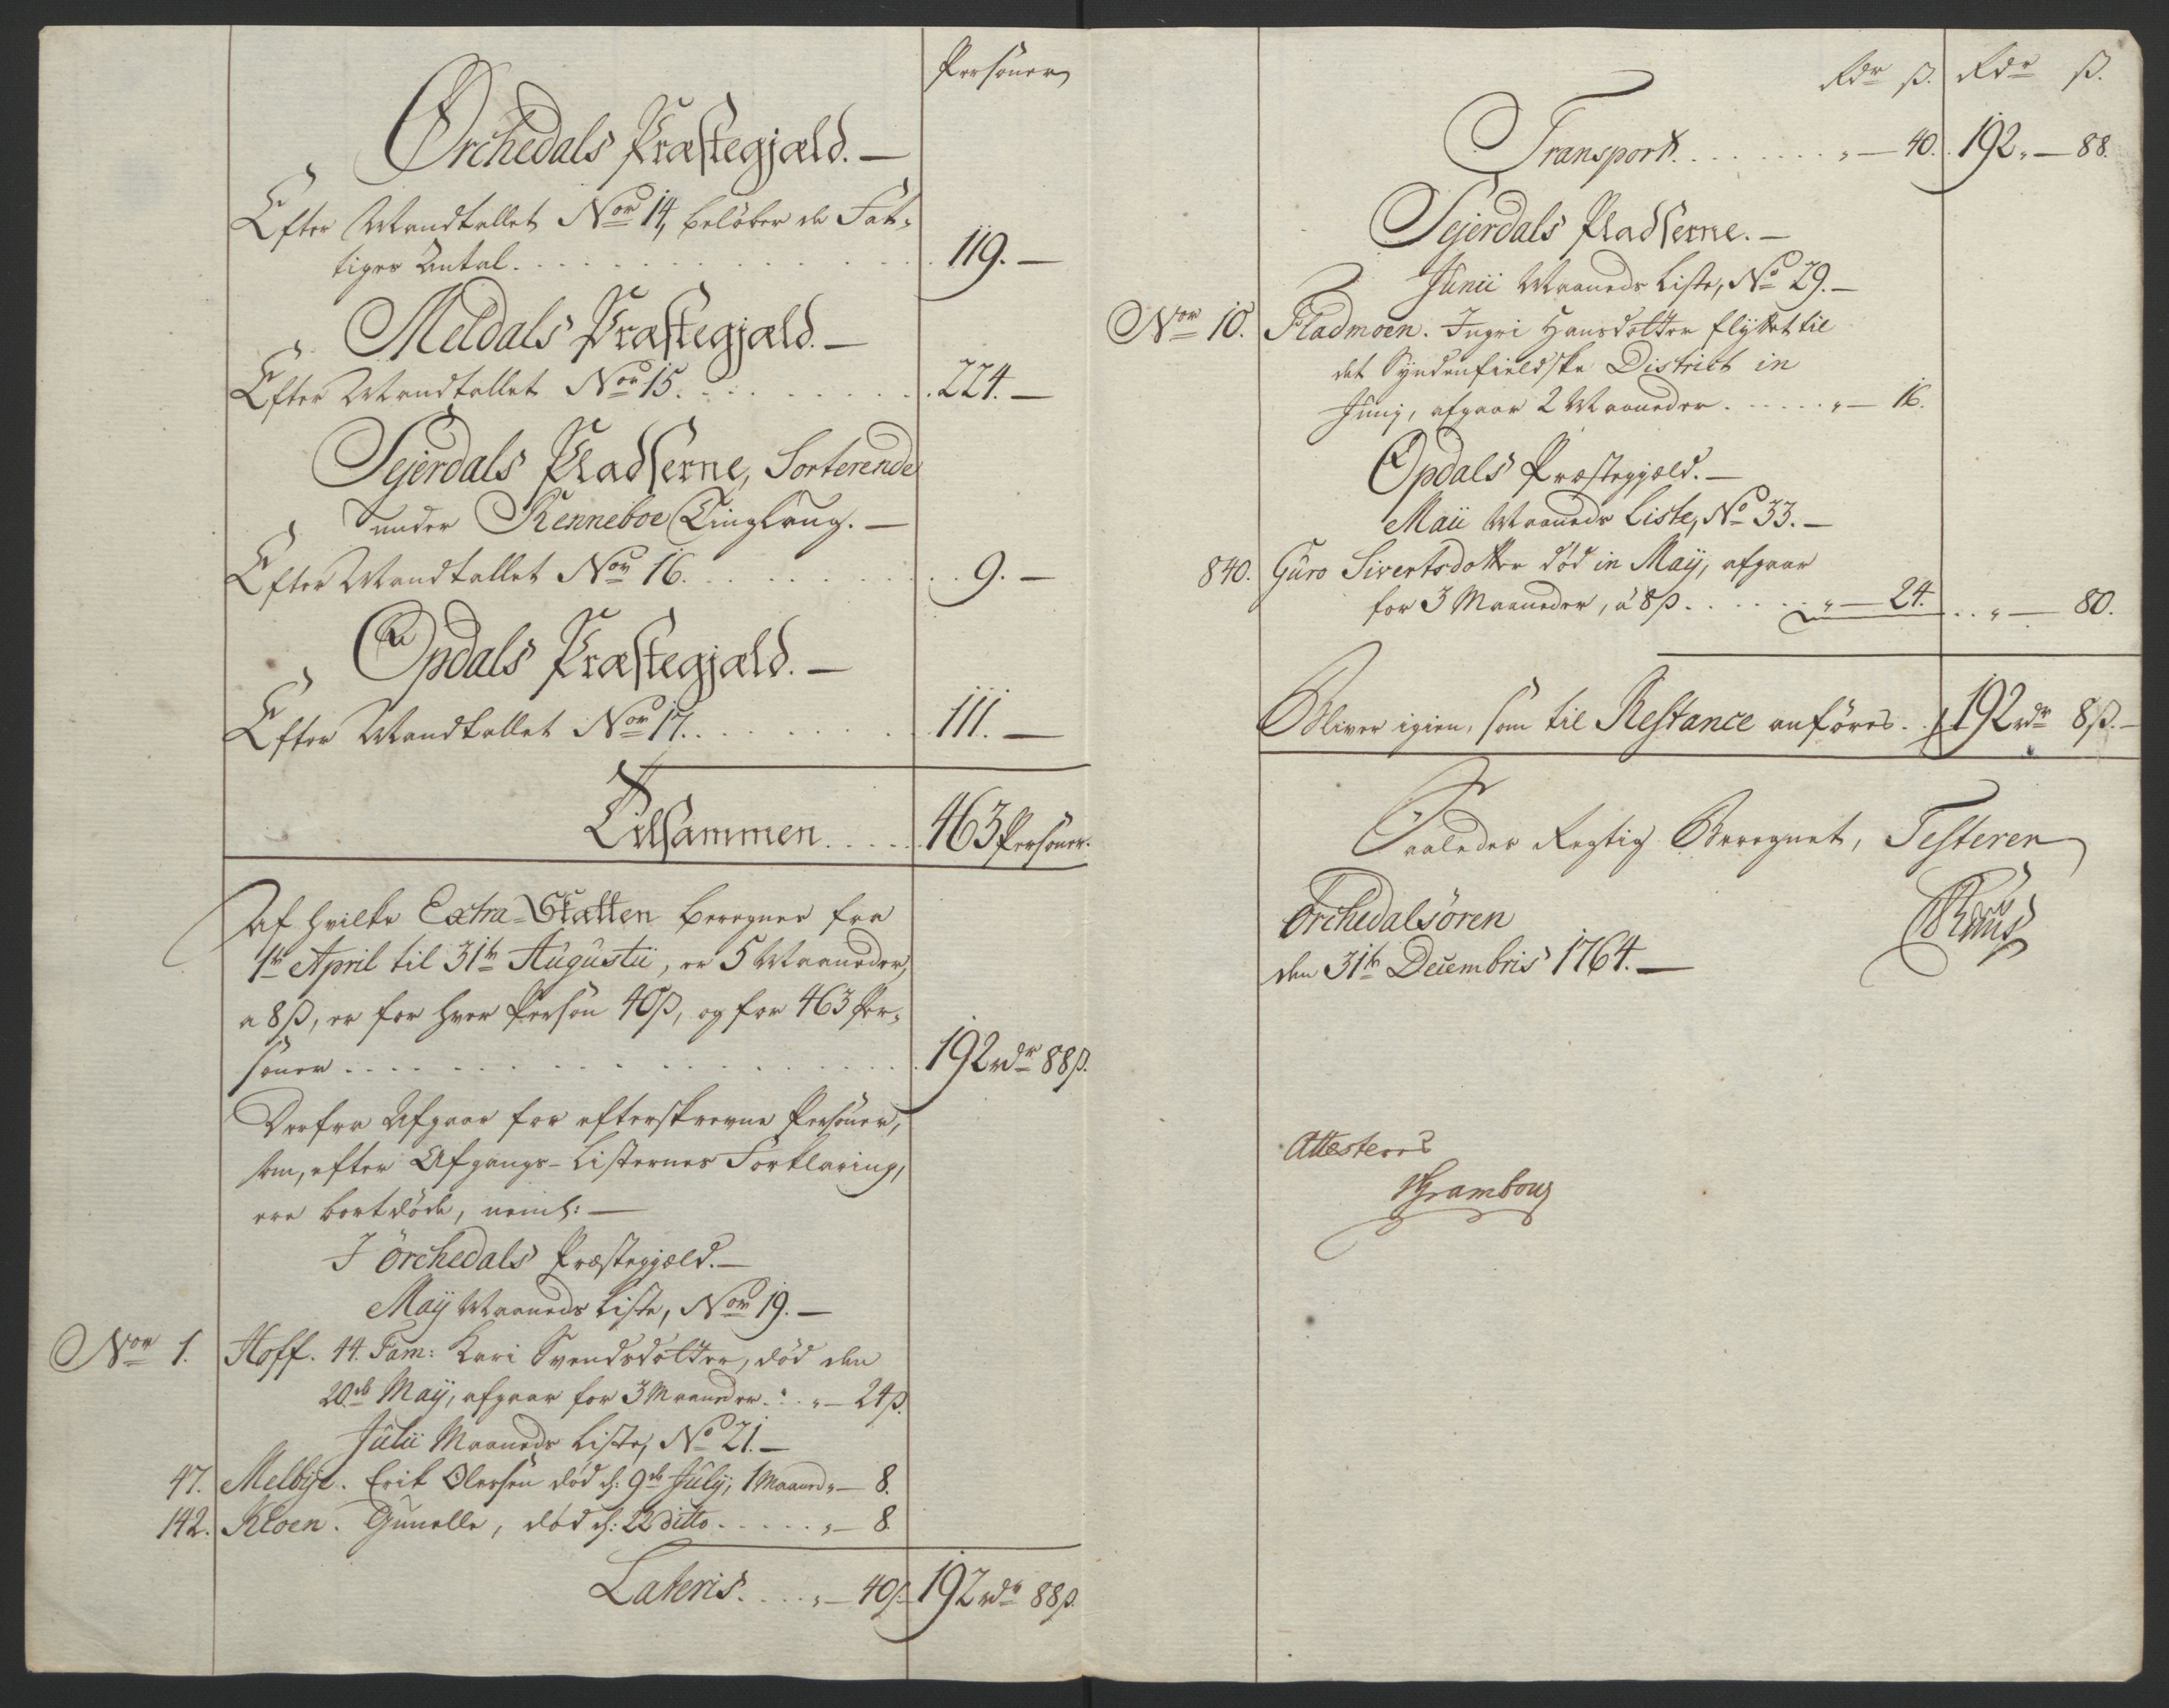 Personer
Ørchedals Præstegjæld. —
Efter Mandtallet Nor 14, beløber de Fat-
tiges Antal. . . . 119. —
Meldals Præstegjæld. —
Efter Mandtallet Nor 15. . . . 224. —
Sejerdals Pladserne, Sorterende
under Renneboe Tinglaug. —
Efter Mandtallet Nor 16. . . . 9. —
Opdals Præstegjæld. —
Efter Mandtallet Nor 17. . . . 111. —
Tilsammen. . . . 463 Personer.
Af hvilke Extra-Skatten beregnes fra
1te April til 31te Augustii, er 5 Maaneder,
a 8 β, er for hver Person 40 β, og for 463 Per-
soner . . . . 192 rdr 88 β.
Derfra Afgaar for efterskrevne Personer,
som, efter Afgangs-Listernes Forklaring,
ere bortdøde, neml: —
I Ørchedals Præstegjæld. —
Maÿ Maaneds Liste, Nor 19. —
Nor 1. Hoff. 44. Fam: Kari Svendsdotter, død den
20de Maÿ, afgaar for 3 Maaneder. . „ — 24 β.
Julii Maaneds Liste, No 21. —
47. Melbye. Erik Olersen død d: 9de Julÿ, 1 Maaned „ — 8.
142. Kloen. Gunelle, død d: 22 ditto . . . . „ — 8
Lateris. . . . „ — 40 β. 192 rdr 88 β.
Rdr β. Rdr β.
Transport. . . . „ — 40. 192. — 88.
Sejerdals Pladserne. —
Junii Maaneds Liste, No 29. —
Nor 10. Fladmoen. Ingri Hansdotter flyttet til
det Syndenfieldske District in
Junij, afgaar 2 Maaneder . . . . „ — 16.
Opdals Præstegjæld. —
Maii Maaneds Liste, No 33. —
840. Guro Sivertsdotter død in Maÿ, afgaar
for 3 Maaneder, á 8 β . . . . „ — 24. . . „ — 80.
Bliver igien, som til Restance anføres. . 192 rdr 8 β. —
Saaledes Rigtig Beregnet, Testeren
Ørchedalsøren
den 31te Decembris 1764. —
Attesteres